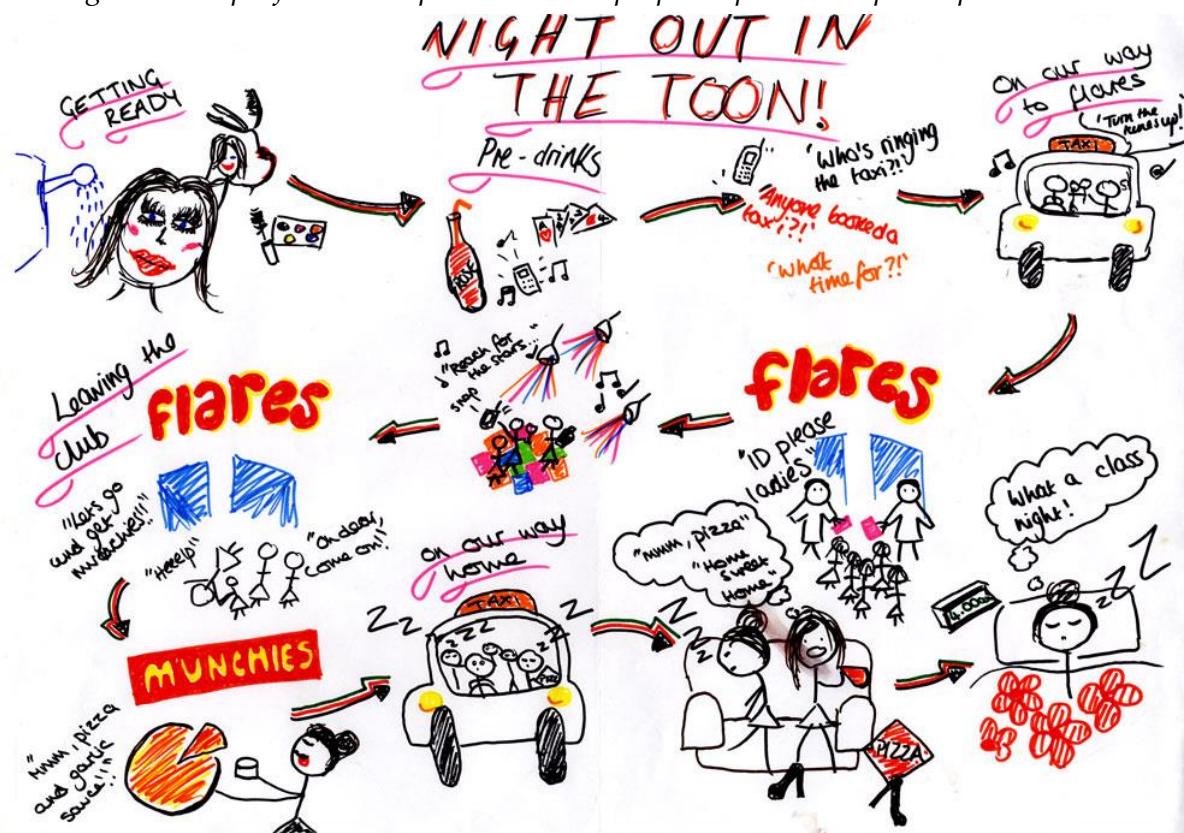 NIGHT OUT IN
THE TOON!
GETTING
READY
Pre-drinks
ROSÉ
A
'Who's ringing
the taxi?!'
'Anyone booked a
taxi?!'
'What
time for?!'
On our way
to flares
'Turn the
tunes up!'
TAXI
flares
"ID please
ladies"
"Reach for
the stars..."
snap
Leaving the
club
flares
"Let's go
and get
munchies!!"
"Heeelp"
"Oh dear,
come on!"
MUNCHIES
"Mmm, pizza
and garlic
sauce!!"
On our way
home
TAXI
z z z z z
"Mmm, pizza"
"Home
sweet
Home"
z z z
PIZZA
What a class
night!
4.00am
z z z